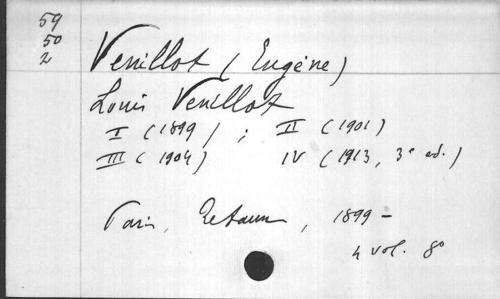 59
50
2
Veuillot (Eugène)
Louis Veuillot
I (1899) ; II (1901)
III (1904) IV (1913, 3e ed.)
Paris, Retaux, 1899 -
4 vol. 8o